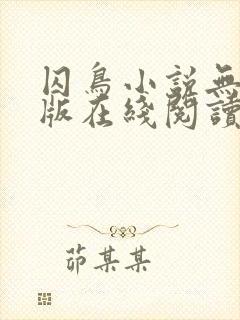 囚鳥小説無
版在綫閱讀
茆某某